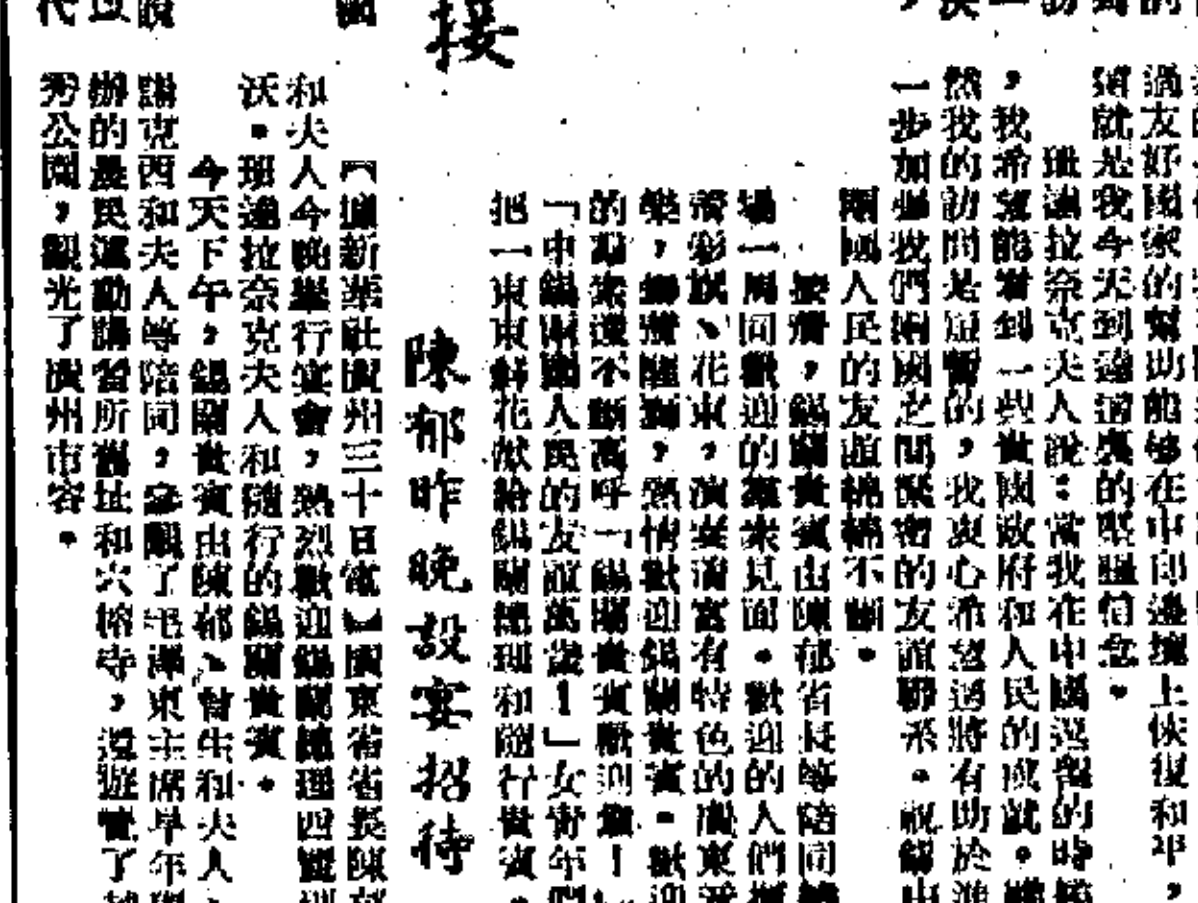 過友好國家的幫助能够在中印邊境上恢復和平，
就是我今天到達這裏的堅强信念。
班達拉奈克夫人說：當我在中國逗留的時候
，我希望能看到一些貴國政府和人民的成就。雖
然我的訪問是短暫的，我衷心希望這將有助於進
一步加强我們兩國之間緊密的友誼聯系。祝錫中
兩國人民的友誼綿綿不斷。
接着，錫蘭貴賓由陳郁省長等陪同繞
場一周同歡迎的羣衆見面。歡迎的人們揮
着彩旗、花束，演奏着富有特色的廣東音
樂，熱情歡迎錫蘭貴賓。歡迎
的羣衆還不斷高呼「錫蘭貴賓歡迎您！」
「中錫兩國人民的友誼萬歲！」女青年們
把一束束鮮花獻給錫蘭總理和隨行貴賓。
接
陳郁昨晚設宴招待
【據新華社廣州三十日電】廣東省省長陳郁
和夫人今晚舉行宴會，熱烈歡迎錫蘭總理西麗瑪
沃·班達拉奈克夫人和隨行的錫蘭貴賓。
今天下午，錫蘭貴賓由陳郁、曾生和夫人、
謝克西和夫人等陪同，參觀了毛澤東主席早年舉
辦的農民運動講習所舊址和六榕寺，還遊覽了越
秀公園，觀光了廣州市容。